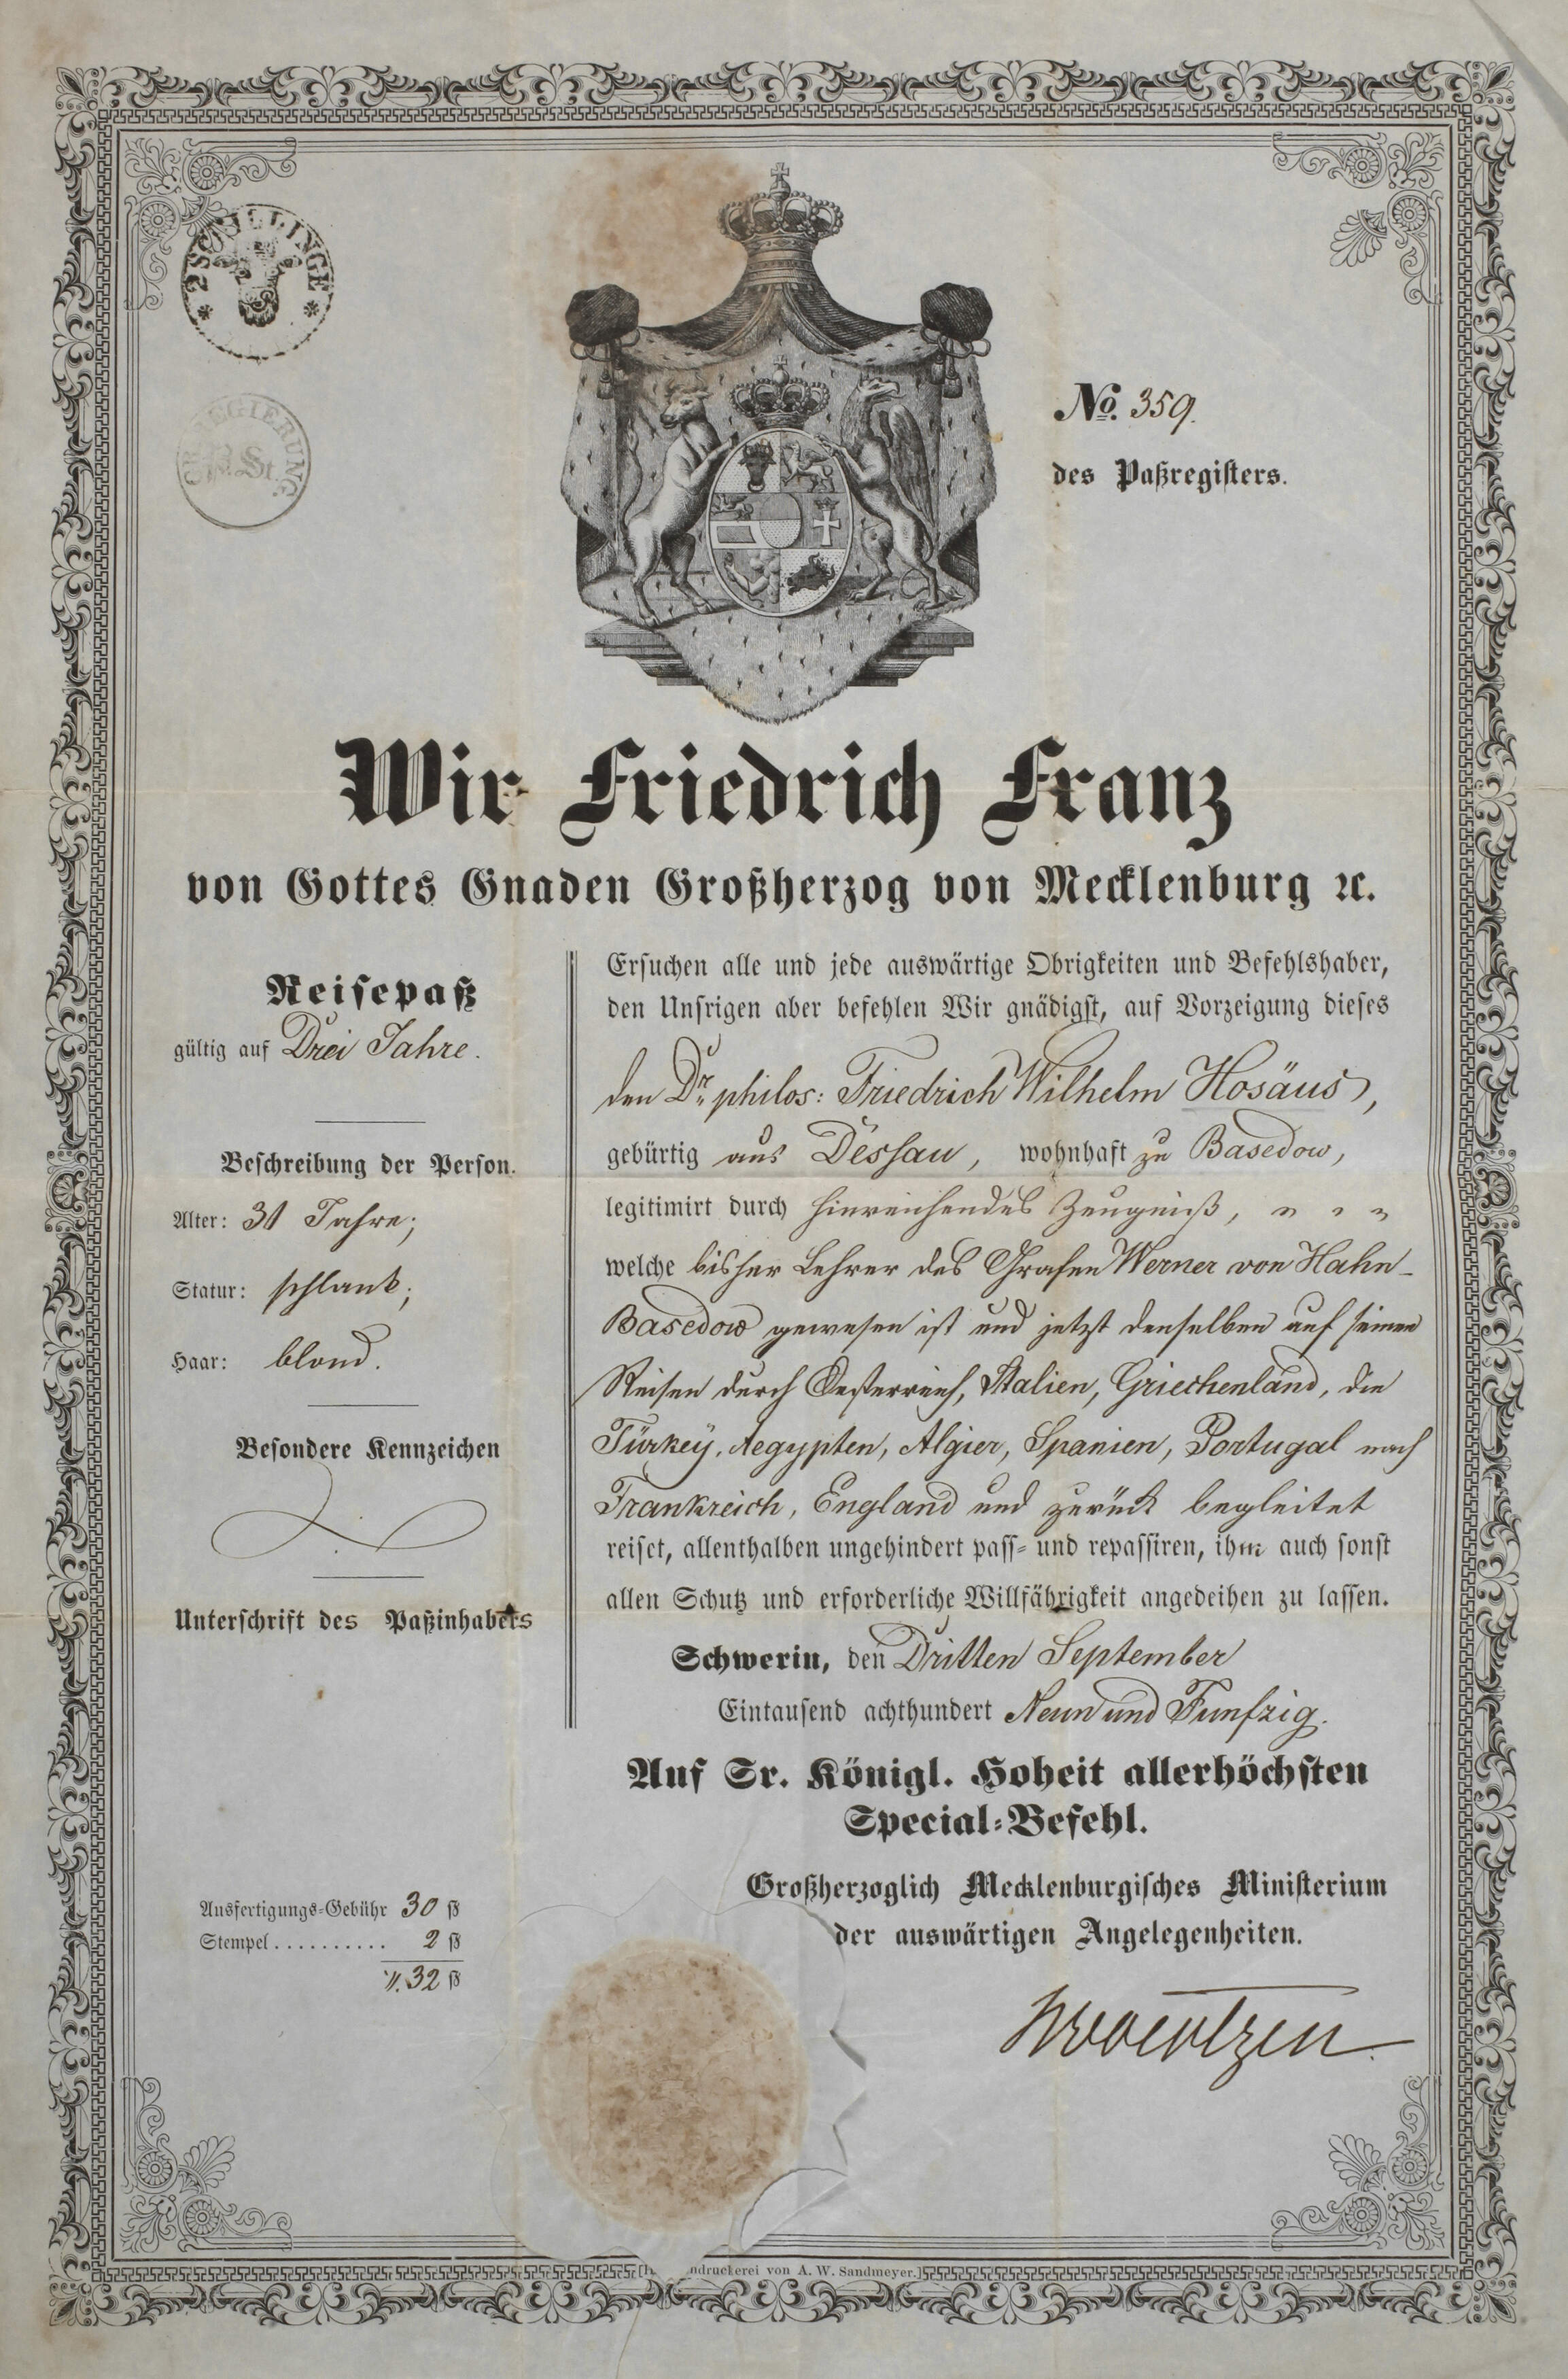 2 SCHILLINGE
REGIERUNG
St.
No. 359.
des Paßregisters.
Wir Friedrich Franz
von Gottes Gnaden Großherzog von Mecklenburg ꝛc.
Reisepaß
gültig auf Drei Jahre.
Beschreibung der Person.
Alter: 31 Jahre;
Statur: schlank;
Haar: blond.
Besondere Kennzeichen
Unterschrift des Paßinhabers
Ausfertigungs-Gebühr 30 ß
Stempel.......... 2 ß
32 ß
Ersuchen alle und jede auswärtige Obrigkeiten und Befehlshaber,
den Unsrigen aber befehlen Wir gnädigst, auf Vorzeigung dieses
den Dr. philos: Friedrich Wilhelm Hosäus,
gebürtig aus Dessau, wohnhaft zu Basedow,
legitimirt durch hinreichendes Zeugniß, " " "
welche bisher Lehrer des Grafen Werner von Hahn-
Basedow gewesen ist und jetzt denselben auf seinen
Reisen durch Oesterreich, Italien, Griechenland, die
Türkey, Aegypten, Algier, Spanien, Portugal nach
Frankreich, England und zurück begleitet
reiset, allenthalben ungehindert pass- und repassiren, ihm auch sonst
allen Schutz und erforderliche Willfährigkeit angedeihen zu lassen.
Schwerin, den Dritten September
Eintausend achthundert Neun und Funfzig.
Auf Sr. Königl. Hoheit allerhöchsten
Special-Befehl.
Großherzoglich Mecklenburgisches Ministerium
der auswärtigen Angelegenheiten.
ndruckerei von A. W. Sandmeyer.]